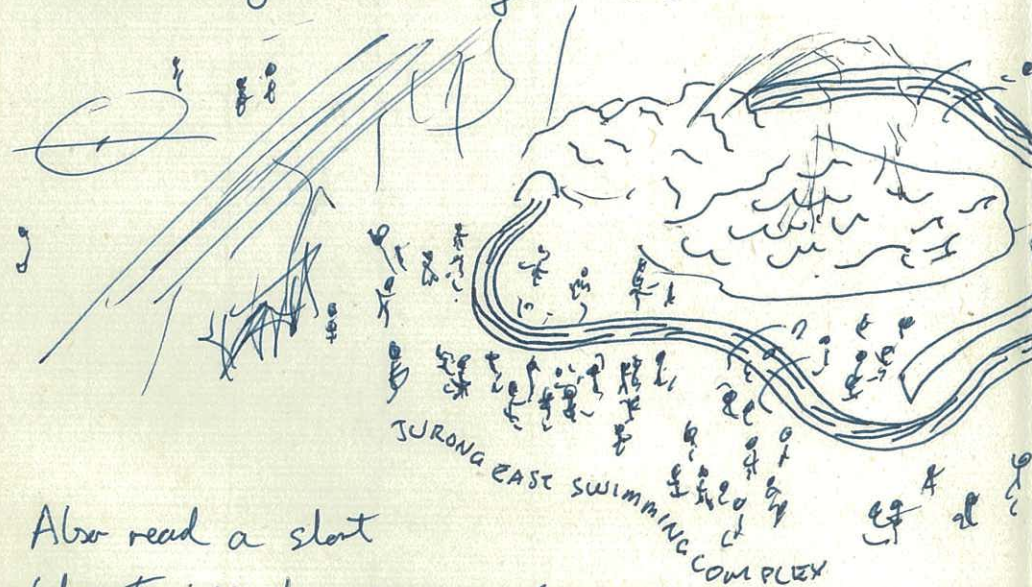 JURONG EAST SWIMMING COMPLEX
Also read a short